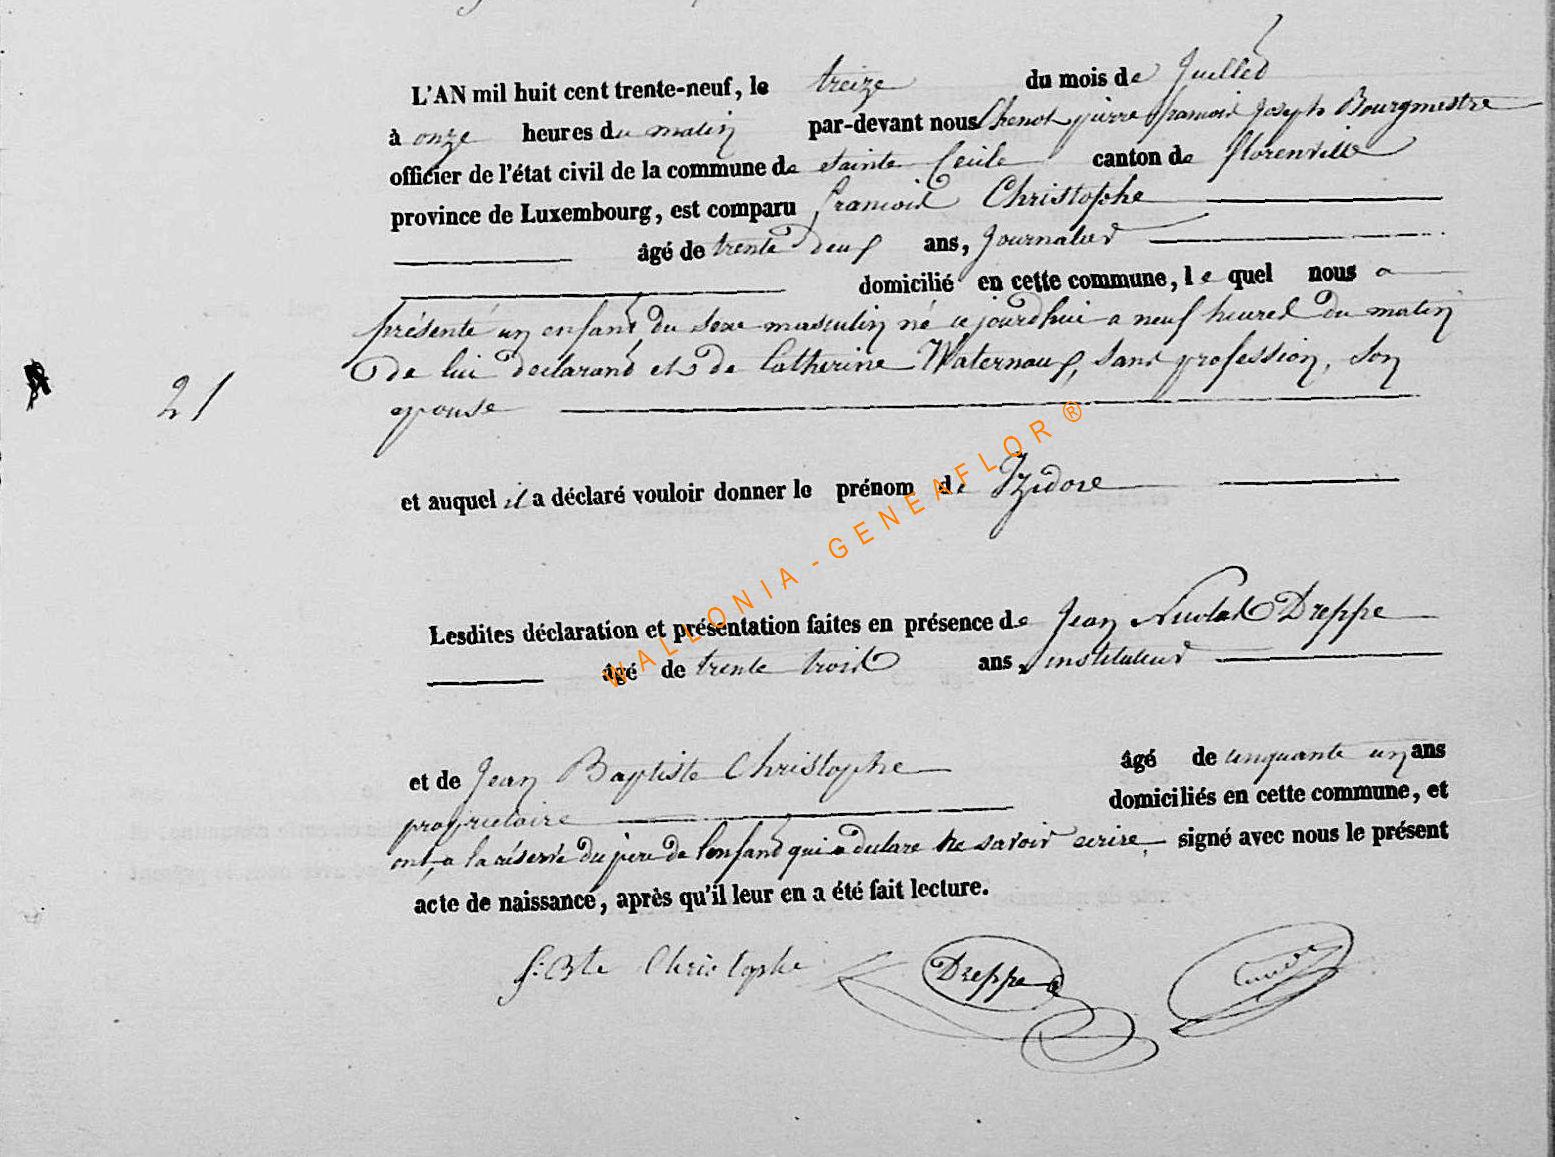 L'AN mil huit cent trente-neuf, le treize du mois de Juillet
à onze heures du matin par-devant nous Chenot pierre francois Joseph Bourgmestre
officier de l'état civil de la commune de Sainte Cecile canton de florenville
province de Luxembourg, est comparu francois Christophe
âgé de trente deux ans, Journalier
domicilié en cette commune, le quel nous a
présenté un enfant du sexe masculin né cejourdhui a neuf heures du matin
de lui declarant et de Catherine Waternaux, sans profession, son
epouse
21
et auquel il a déclaré vouloir donner le prénom de Izidore
Lesdites déclaration et présentation faites en présence de Jean Nicolas Dreppe
âgé de trente trois ans, instituteur
et de Jean Baptiste Christophe âgé de cinquante un ans
proprietaire domiciliés en cette commune, et
ont, a la réserve du pere de l'enfant qui a declare ne savoir ecrire, signé avec nous le présent
acte de naissance, après qu'il leur en a été fait lecture.
J: Bte Christophe Dreppe
WALLONIA - GENEAFLOR ®